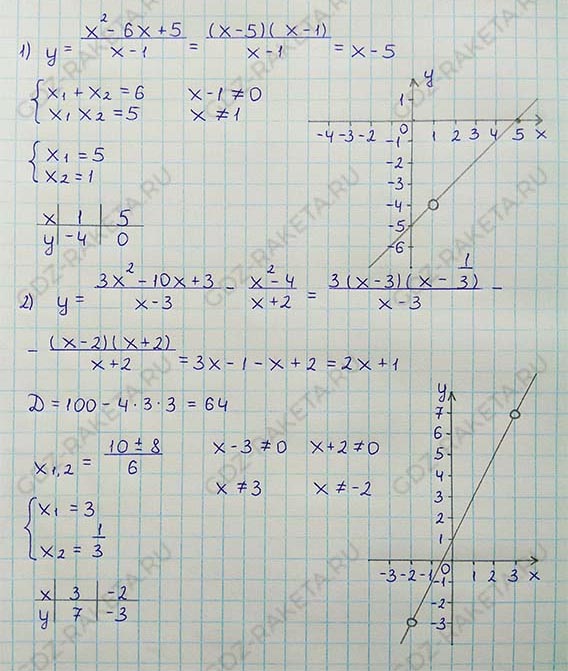 1) y = (x² - 6x + 5)/(x - 1) = ((x-5)(x-1))/(x-1) = x - 5
{ x₁ + x₂ = 6    x - 1 ≠ 0
{ x₁ x₂ = 5    x ≠ 1
{ x₁ = 5
{ x₂ = 1
x | 1 | 5
y | -4 | 0
y
1
-4 -3 -2 0 1 2 3 4 5 x
-1
-2
-3
-4
-5
-6
2) y = (3x² - 10x + 3)/(x - 3) - (x² - 4)/(x + 2) = (3(x-3)(x - 1/3))/(x - 3) -
- ((x-2)(x+2))/(x+2) = 3x - 1 - x + 2 = 2x + 1
D = 100 - 4·3·3 = 64
x₁,₂ = (10 ± 8)/6    x - 3 ≠ 0    x + 2 ≠ 0
x ≠ 3    x ≠ -2
{ x₁ = 3
{ x₂ = 1/3
x | 3 | -2
y | 7 | -3
y
7
6
5
4
3
2
1
-3 -2 -1 0 1 2 3 x
-1
-2
-3
GDZ-RAKETA.RU